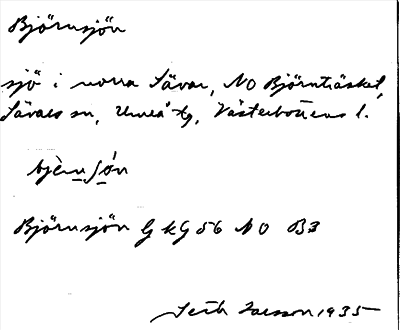 Björnsjön
sjö i norra Sävar, NO Björnträsket,
Sävars sn, Umeå tg, Västerbottens l.
bjè̱rnʃó̱n
Björnsjön G k G 56 NO B3
Seth Larsson 1935